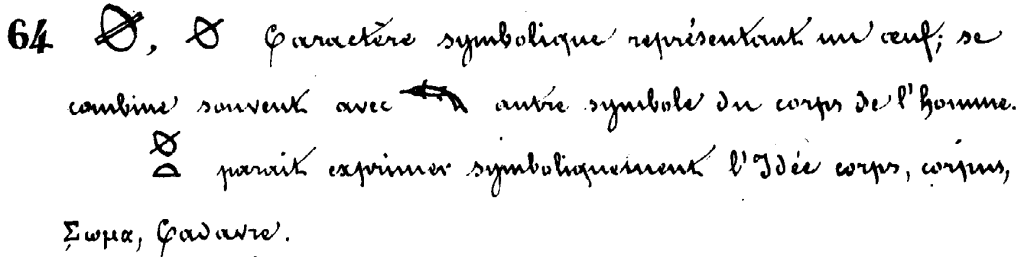 64 , Caractère symbolique représentant un œuf; se
combine souvent avec autre symbole du corps de l'homme.
parait exprimer symboliquement l'Idée corps, corpus,
Σωμα, Cadavre.